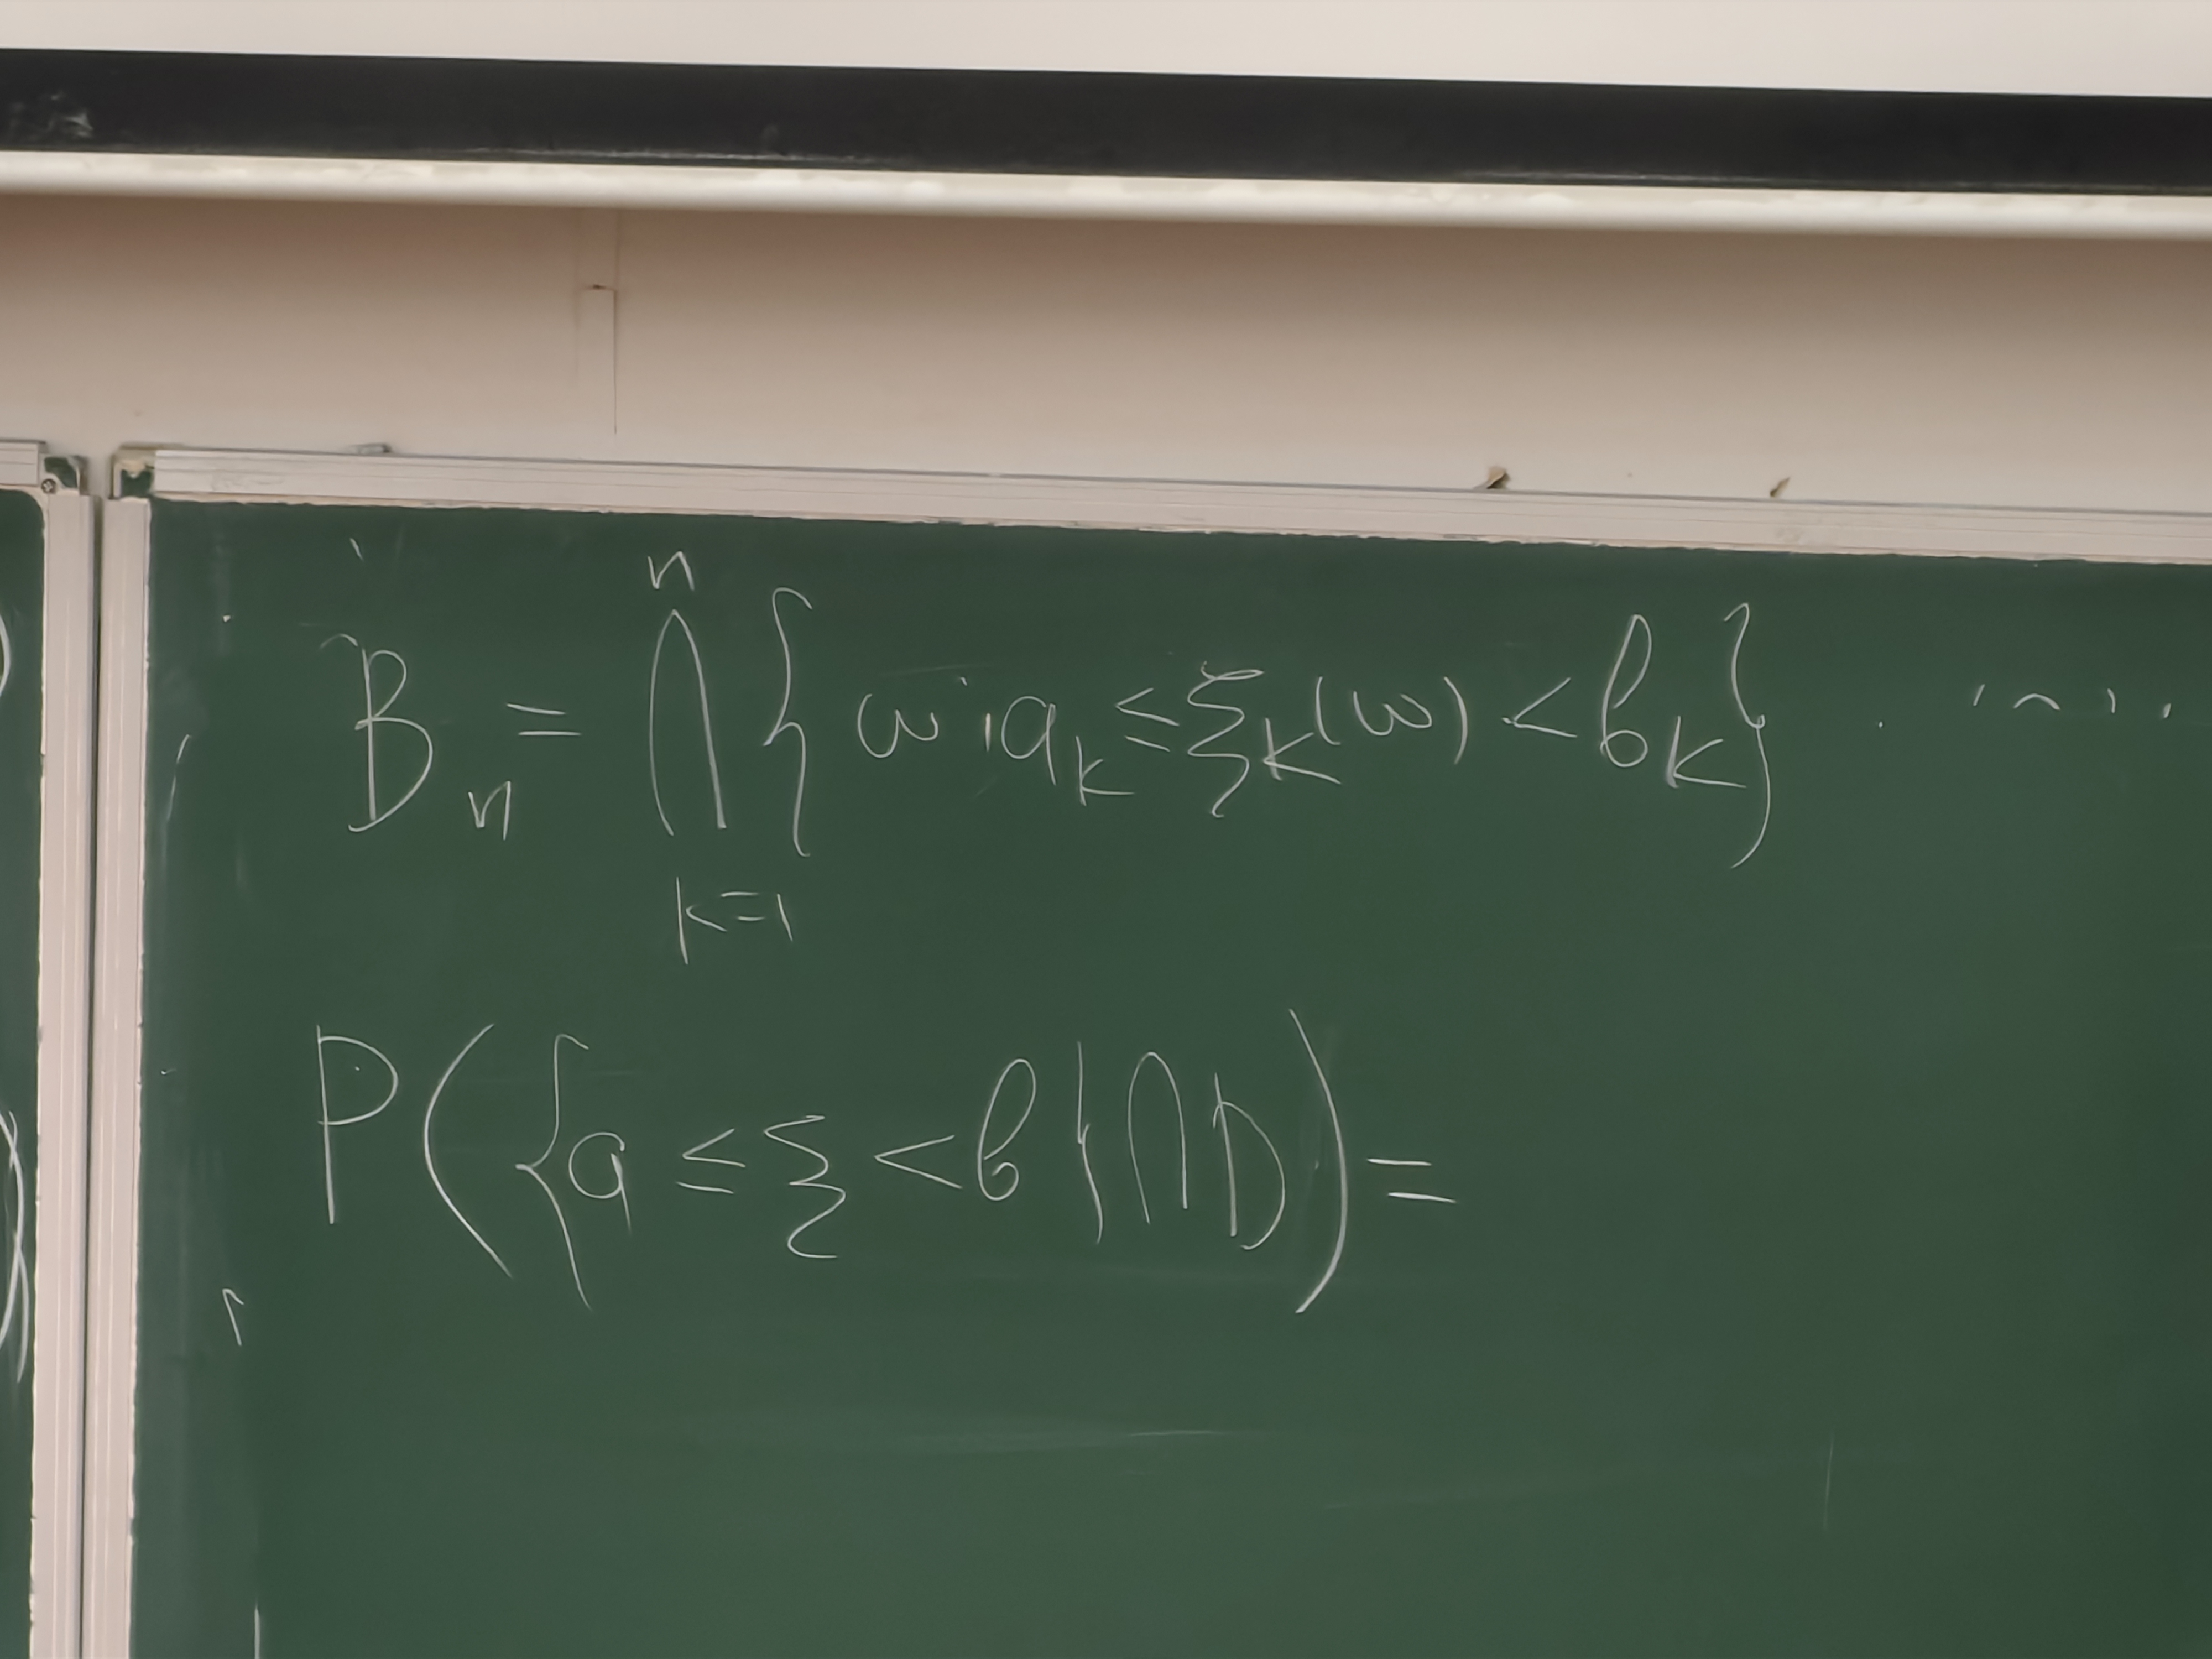 B_n = ⋂_{k=1}^{n} { ω : a_k ≤ ξ_k(ω) < b_k }
P({a ≤ ξ < b} ∩ D) =